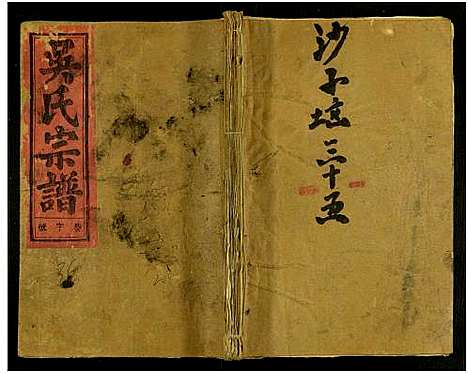 吳氏宗譜
字號
沙子坑三十五